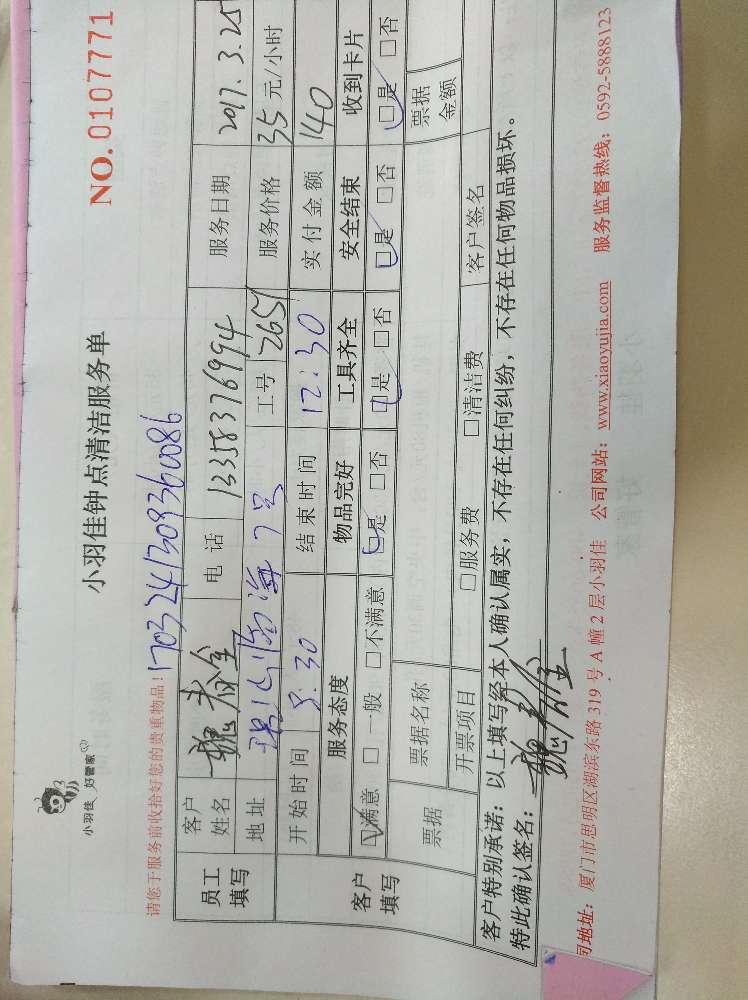 小羽佳 好管家
小羽佳钟点清洁服务单
NO. 0107771
请您于服务前收拾好您的贵重物品！1703241309360086
员工填写
客户姓名 魏春金 电话 13358376994 服务日期 2017.3.25
地址 海 7号 工号 2651 服务价格 35元/小时
开始时间 8:30 结束时间 12:30 实付金额 140
客户填写
服务态度 物品完好 工具齐全 安全结束 收到卡片
☑满意 □一般 □不满意 ☑是 □否 ☑是 □否 ☑是 □否 ☑是 □否
票据 票据名称 票据金额
开票项目 □服务费 □清洁费 客户签名
客户特别承诺：以上填写经本人确认属实，不存在任何纠纷，不存在任何物品损坏。
特此确认签名：魏春金
司地址：厦门市思明区湖滨东路 319 号 A 幢 2 层小羽佳 公司网站：www.xiaoyujia.com 服务监督热线：0592-5888123